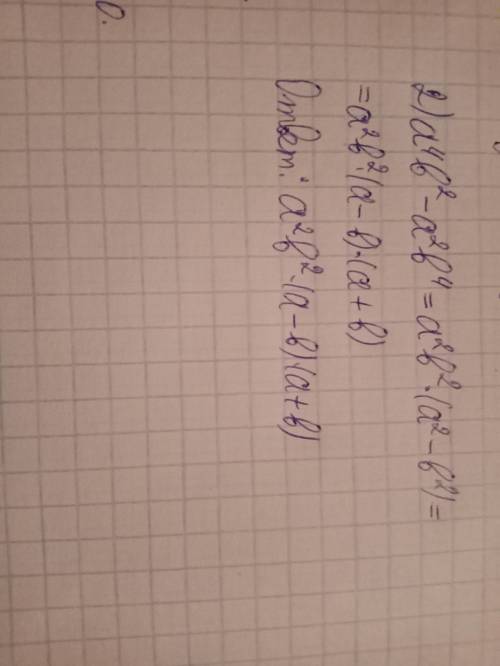 0.
2) a⁴b² - a²b⁴ = a²b²·(a² - b²) =
= a²b²·(a - b)·(a + b)
Ответ: a²b²·(a - b)(a + b)